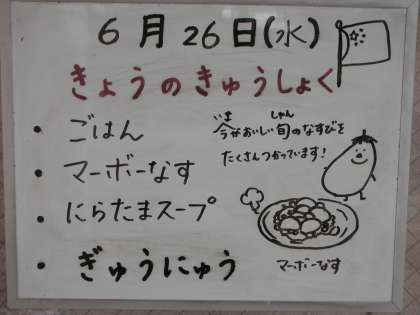 6月26日(水)
きょうのきゅうしょく
・ごはん
・マーボーなす
・にらたまスープ
・ぎゅうにゅう
いま しゅん
今がおいしい旬のなすびを
たくさんつかっています!
マーボーなす